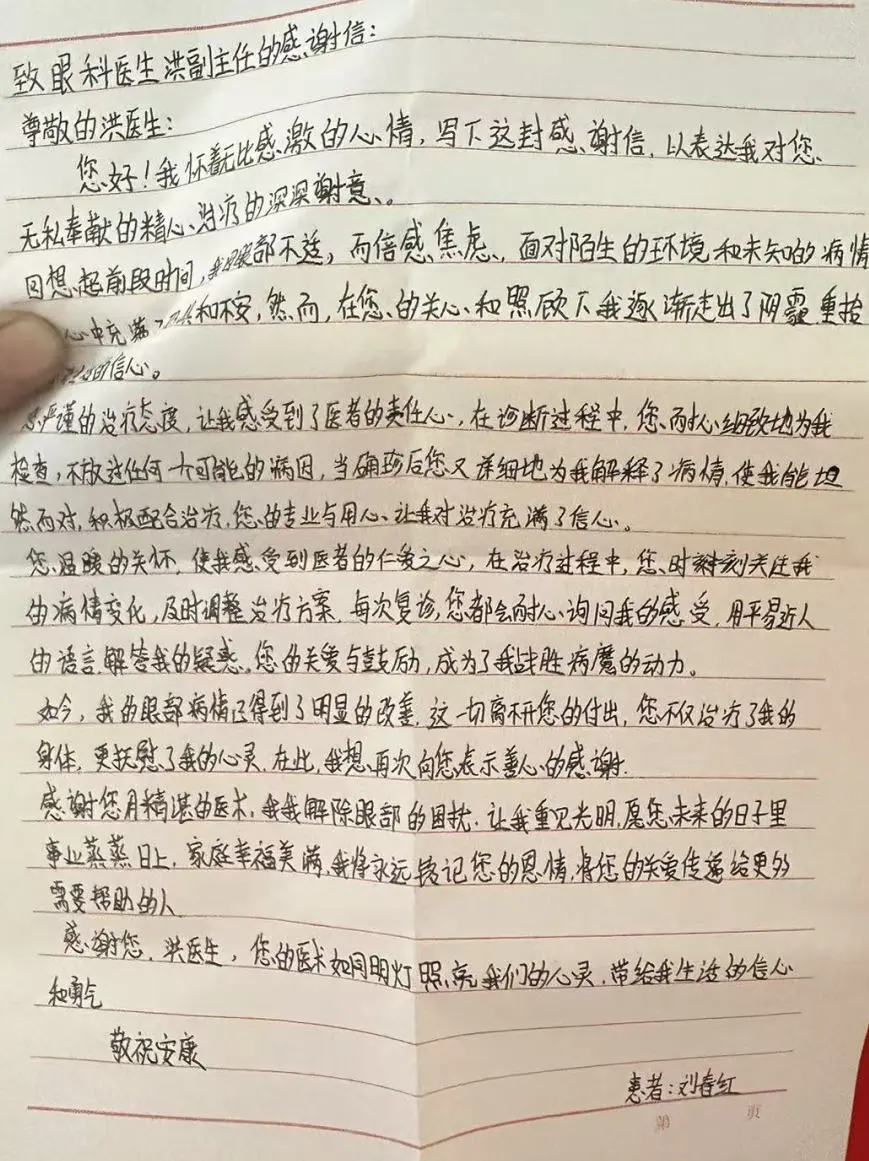 致眼科医生洪副主任的感谢信：
尊敬的洪医生：
您好！我怀着无比感激的心情，写下这封感谢信，以表达我对您
无私奉献的精心治疗的深深谢意。
回想起前段时间，我因眼部不适，而倍感焦虑，面对陌生的环境和未知的病情
心中充满了和不安，然而，在您的关心和照顾下我逐渐走出了阴霾，重拾
的信心。
您严谨的治疗态度，让我感受到了医者的责任心，在诊断过程中，您耐心细致地为我
检查，不放过任何一个可能的病因，当确珍后您又详细地为我解释了病情，使我能坦
然面对，积极配合治疗，您的专业与用心、让我对治疗充满了信心。
您温暖的关怀，使我感受到医者的仁爱之心，在治疗过程中，您时刻关注我
的病情变化，及时调整治疗方案，每次复诊，您都会耐心询问我的感受，用平易近人
的语言，解答我的疑惑，您的关爱与鼓励，成为了我战胜病魔的动力。
如今，我的眼部病情已得到了明显的改善，这一切离不开您的付出，您不仅治疗了我的
身体，更抚慰了我的心灵，在此，我想再次向您表示善心的感谢．
感谢您月精湛的医术，我我解除眼部的困扰．让我重见光明，愿您未来的日子里
事业蒸蒸日上，家庭幸福美满，我将永远铭记您的恩情，将您的关爱传递给更多
需要帮助的人
感谢您，洪医生，您的医术如同明灯照亮我们的心灵，带给我生活的信心
和勇气
敬祝安康
患者：刘春红
第 页